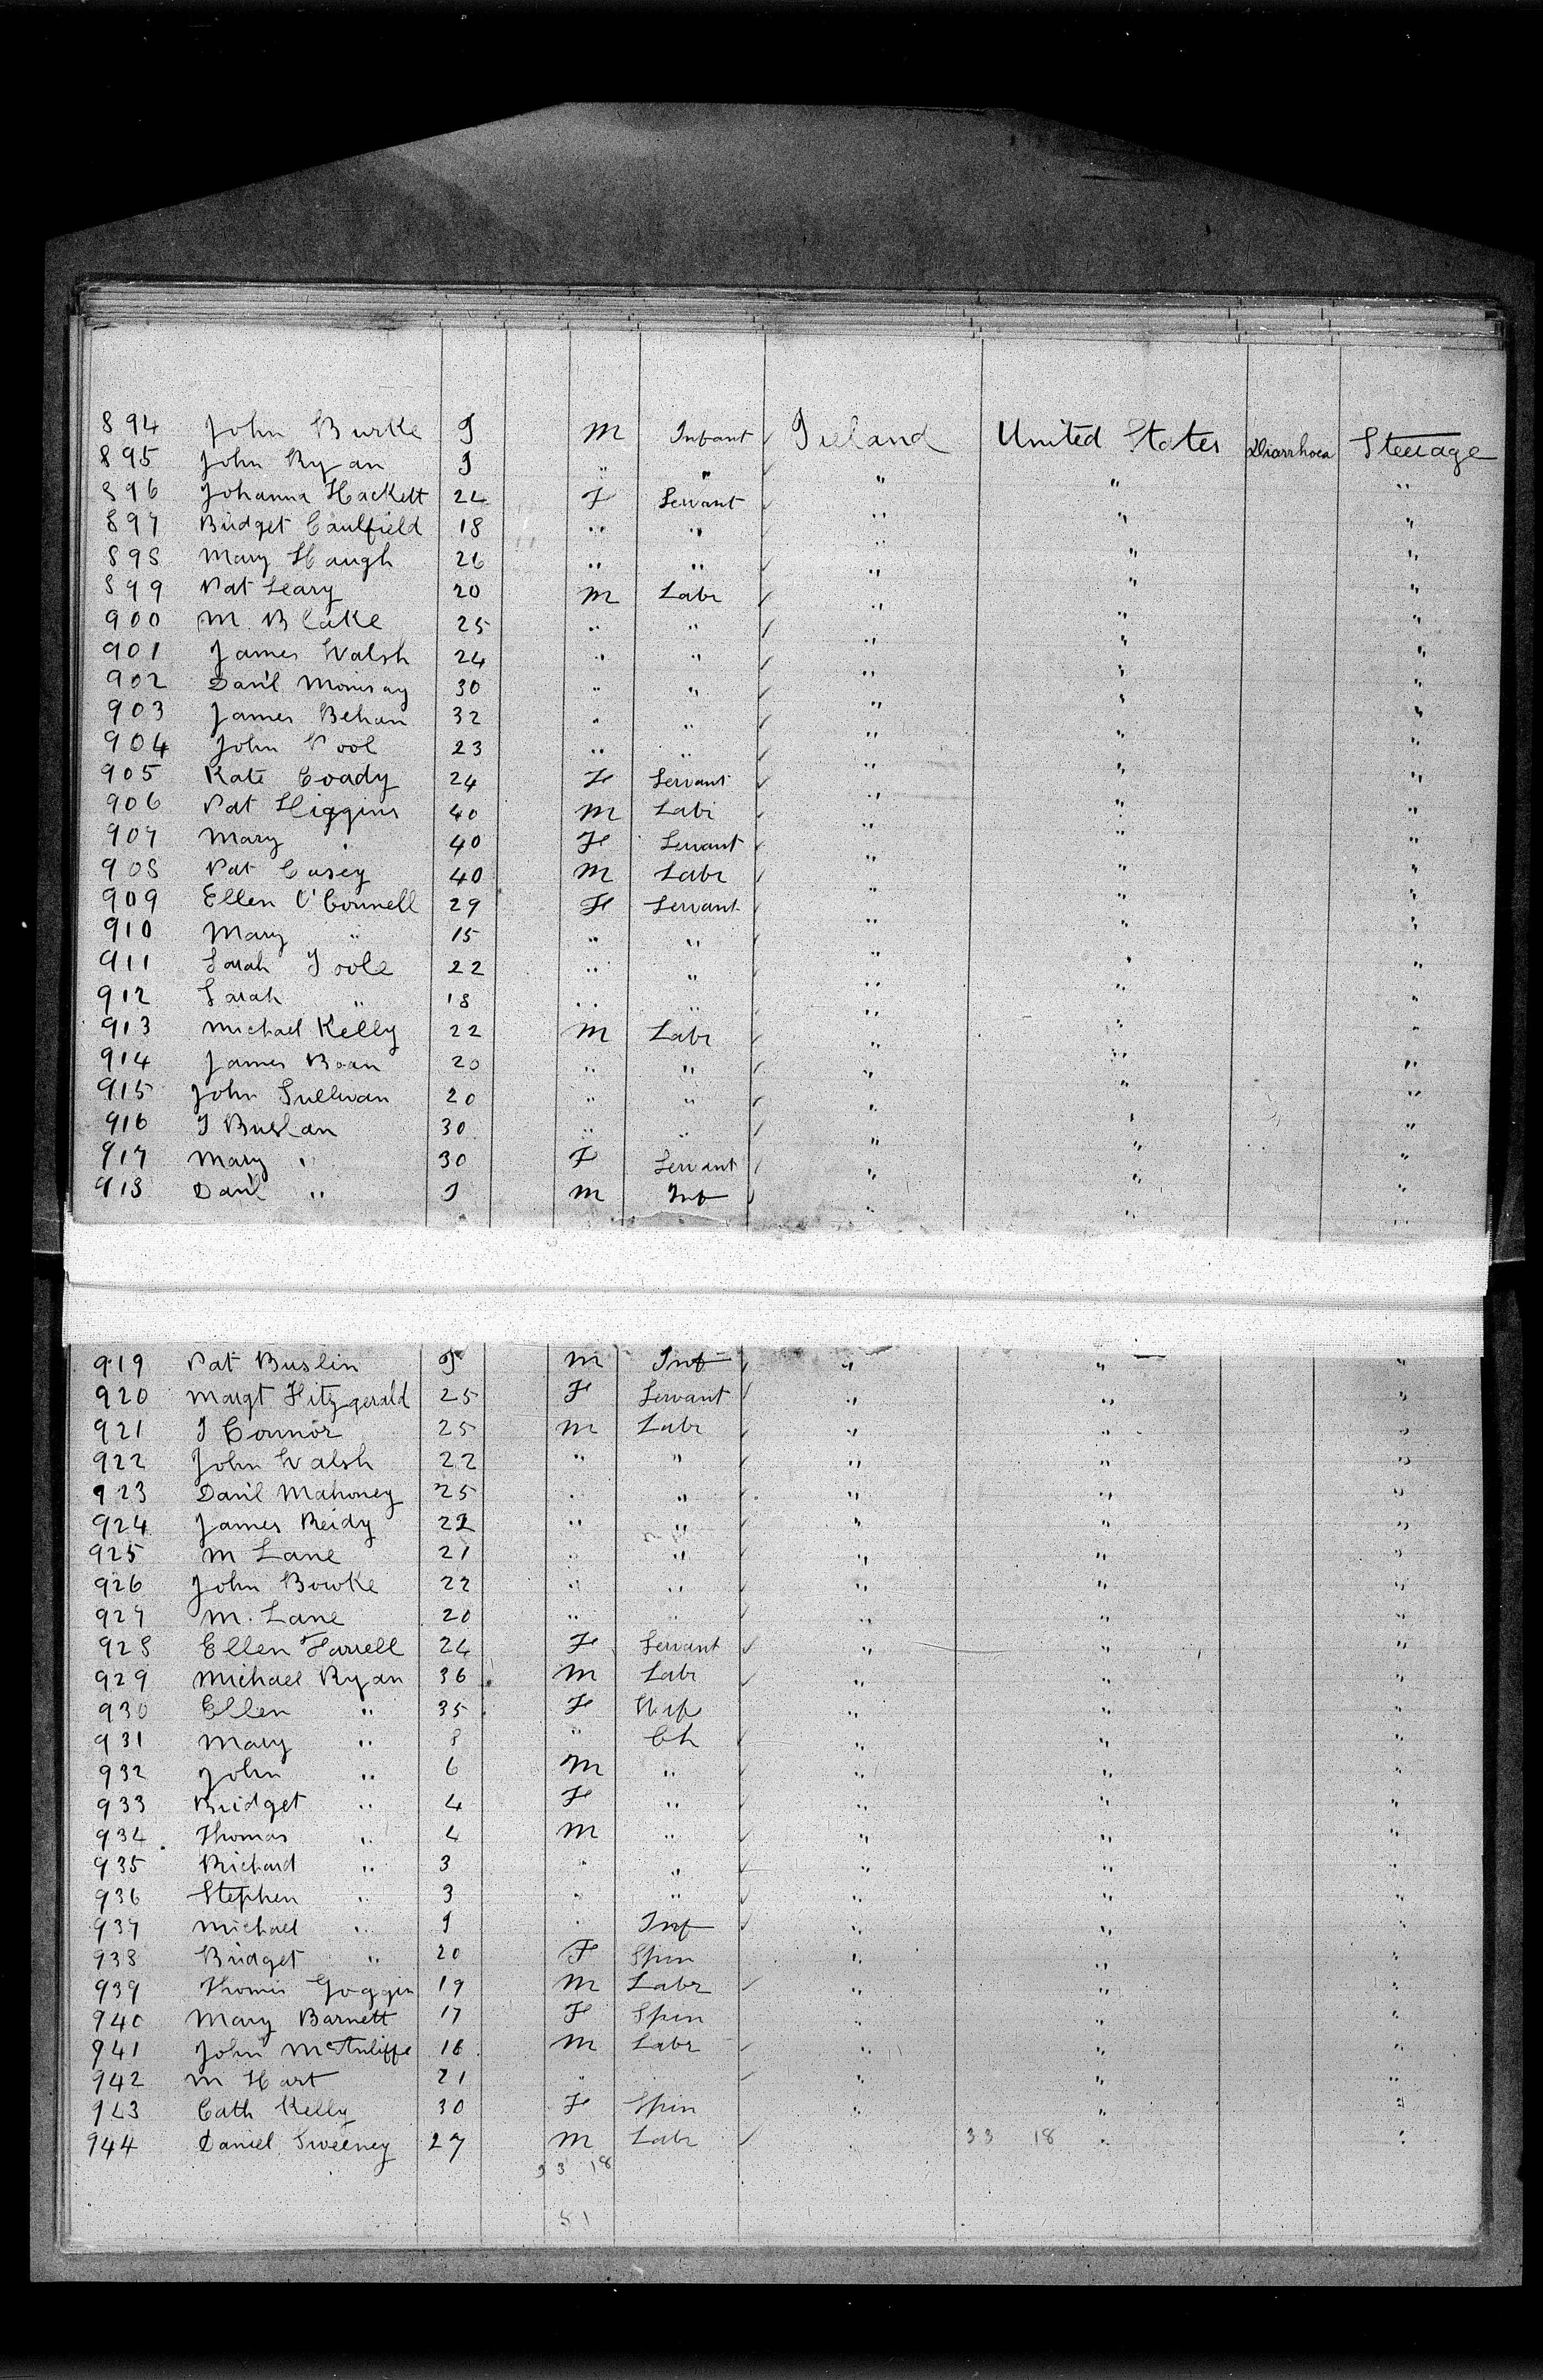 894 John Burke I M Infant Ireland United States Diarrhoea Steerage
895 John Ryan I " " " " "
896 Johanna Hackett 22 F Servant " " "
897 Bridget Caulfield 18 " " " " "
898 Mary Haugh 26 " " " " "
899 Pat Leary 20 M Labr " " "
900 M. Blake 25 " " " " "
901 James Walsh 24 " " " " "
902 Danl 30 " " " " "
903 James Behan 32 " " " " "
904 John Pool 23 " " " " "
905 Kate Coady 24 F Servant " " "
906 Pat Higgins 40 M Labr " " "
907 Mary " 40 F Servant " " "
908 Pat Casey 40 M Labr " " "
909 Ellen O'Connell 29 F Servant " " "
910 Mary " 15 " " " " "
911 Sarah Toole 22 " " " " "
912 Sarah " 18 " " " " "
913 Michael Kelly 22 M Labr " " "
914 James 20 " " " " "
915 John Sullivan 20 " " " " "
916 J Buslan 30 " " " " "
917 Mary " 30 F Servant " " "
918 Danl " I M Inf " " "
919 Pat Buslin I M Inf " " "
920 Margt Fitzgerald 25 F Servant " " "
921 J Connor 25 M Labr " " "
922 John Walsh 22 " " " " "
923 Danl Mahoney 25 " " " " "
924 James Reidy 22 " " " " "
925 M Lane 21 " " " " "
926 John Bowke 22 " " " " "
927 M. Lane 20 " " " " "
928 Ellen Farrell 24 F Servant " " "
929 Michael Ryan 36 M Labr " " "
930 Ellen " 35 F Wife " " "
931 Mary " 8 " Ch " " "
932 John " 6 M " " " "
933 Bridget " 4 F " " " "
934 Thomas " 4 M " " " "
935 Richard " 3 " " " " "
936 Stephen " 3 " " " " "
937 Michael " I " Inf " " "
938 Bridget " 20 F Spin " " "
939 Thomas Goggin 19 M Labr " " "
940 Mary Barnett 17 F Spin " " "
941 John McAuliffe 18 M Labr " " "
942 M Hart 21 " " " " "
943 Cath Kelly 30 F Spin " " "
944 Daniel Sweeney 27 M Labr " 33 18 " "
33 18
51